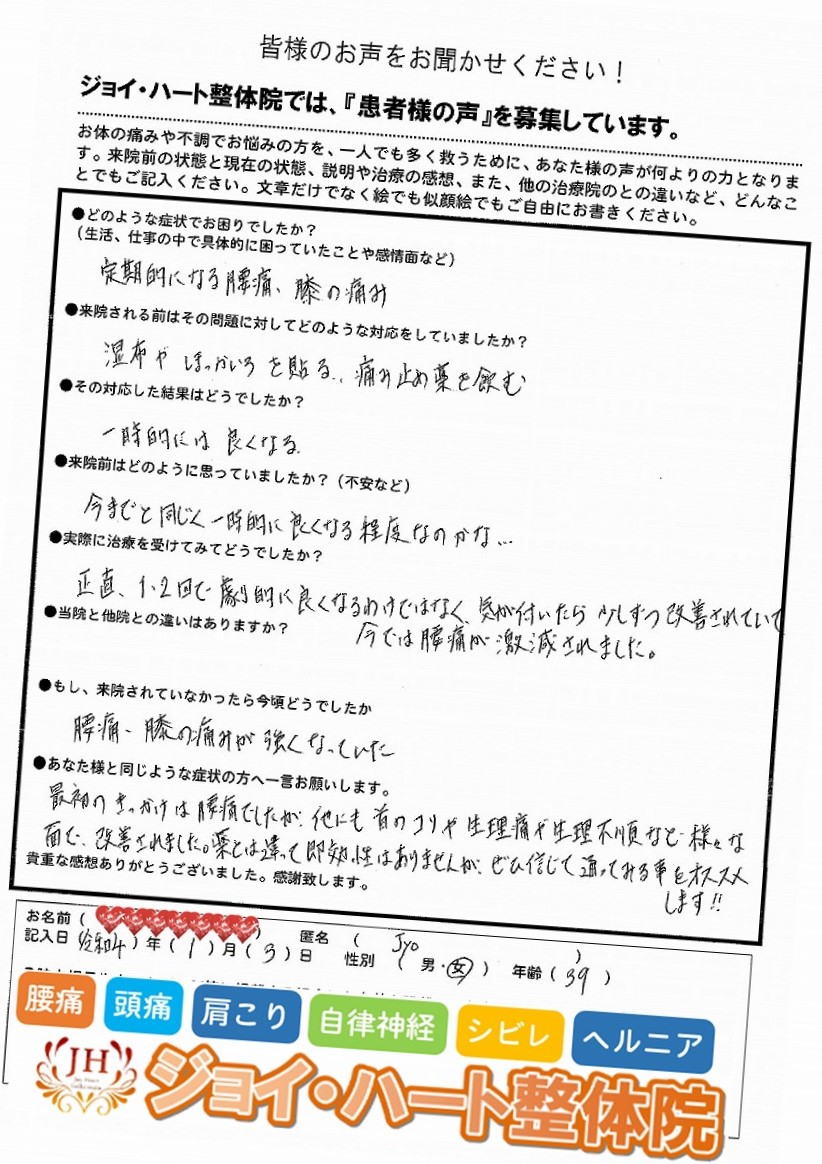 皆様のお声をお聞かせください！
ジョイ・ハート整体院では、『患者様の声』を募集しています。
お体の痛みや不調でお悩みの方を、一人でも多く救うために、あなた様の声が何よりの力となりま
す。来院前の状態と現在の状態、説明や治療の感想、また、他の治療院のとの違いなど、どんなこ
とでもご記入ください。文章だけでなく絵でも似顔絵でもご自由にお書きください。
●どのような症状でお困りでしたか？
（生活、仕事の中で具体的に困っていたことや感情面など）
定期的になる腰痛、膝の痛み
●来院される前はその問題に対してどのような対応をしていましたか？
湿布やほっかいろを貼る、痛み止め薬を飲む
●その対応した結果はどうでしたか？
一時的には良くなる
●来院前はどのように思っていましたか？（不安など）
今までと同じく一時的に良くなる程度なのかな…
●実際に治療を受けてみてどうでしたか？
正直、1・2回で劇的に良くなるわけではなく、気が付いたら少しずつ改善されていて
今では腰痛が激減されました。
●当院と他院との違いはありますか？
●もし、来院されていなかったら今頃どうでしたか
腰痛、膝の痛みが強くなっていた
●あなた様と同じような症状の方へ一言お願いします。
最初のきっかけは腰痛でしたが、他にも首のコリや生理痛や生理不順など様々な
面で、改善されました。薬とは違って即効性はありませんが、ぜひ信じて通ってみる事をオススメ
します!!
貴重な感想ありがとうございました。感謝致します。
お名前（　）　匿名（ Jyo ）
記入日（令和4）年（1）月（3）日　性別（男・女）　年齢（39）
腰痛 頭痛 肩こり 自律神経 シビレ ヘルニア
JH
ジョイ・ハート整体院